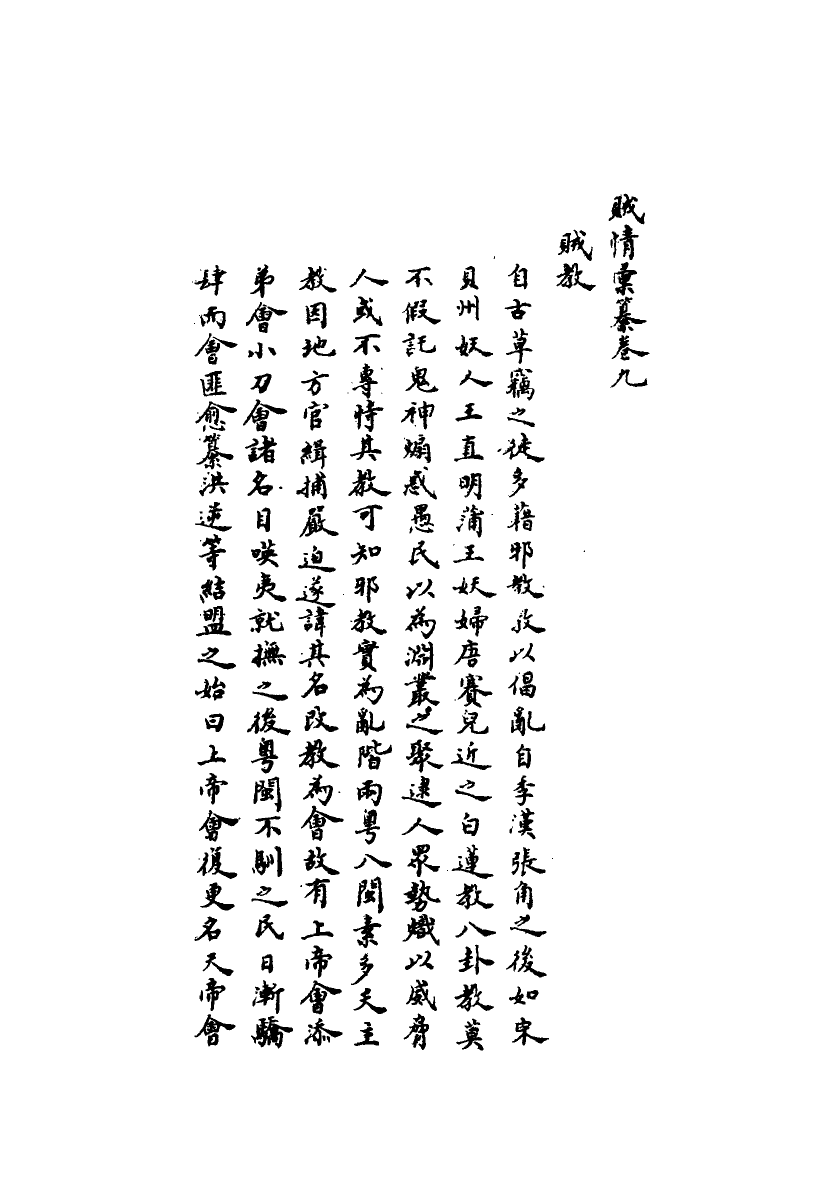 賊情彚纂卷九
賊教
自古草竊之徒多藉邪教以倡亂自季漢張角之後如宋
貝州妖人王直明蒲王妖婦唐賽兒近之白蓮教八卦教莫
不假託鬼神煽惑愚民以為淵叢之聚逮人眾勢熾以威脅
人或不專恃其教可知邪教實為亂階兩粵八閩素多天主
教因地方官緝捕嚴迫遂諱其名改教為會故有上帝會添
弟會小刀會諸名目嘆夷就撫之後粵閩不馴之民日漸驕
肆而會匪愈纂洪逆等結盟之始曰上帝會復更名天帝會